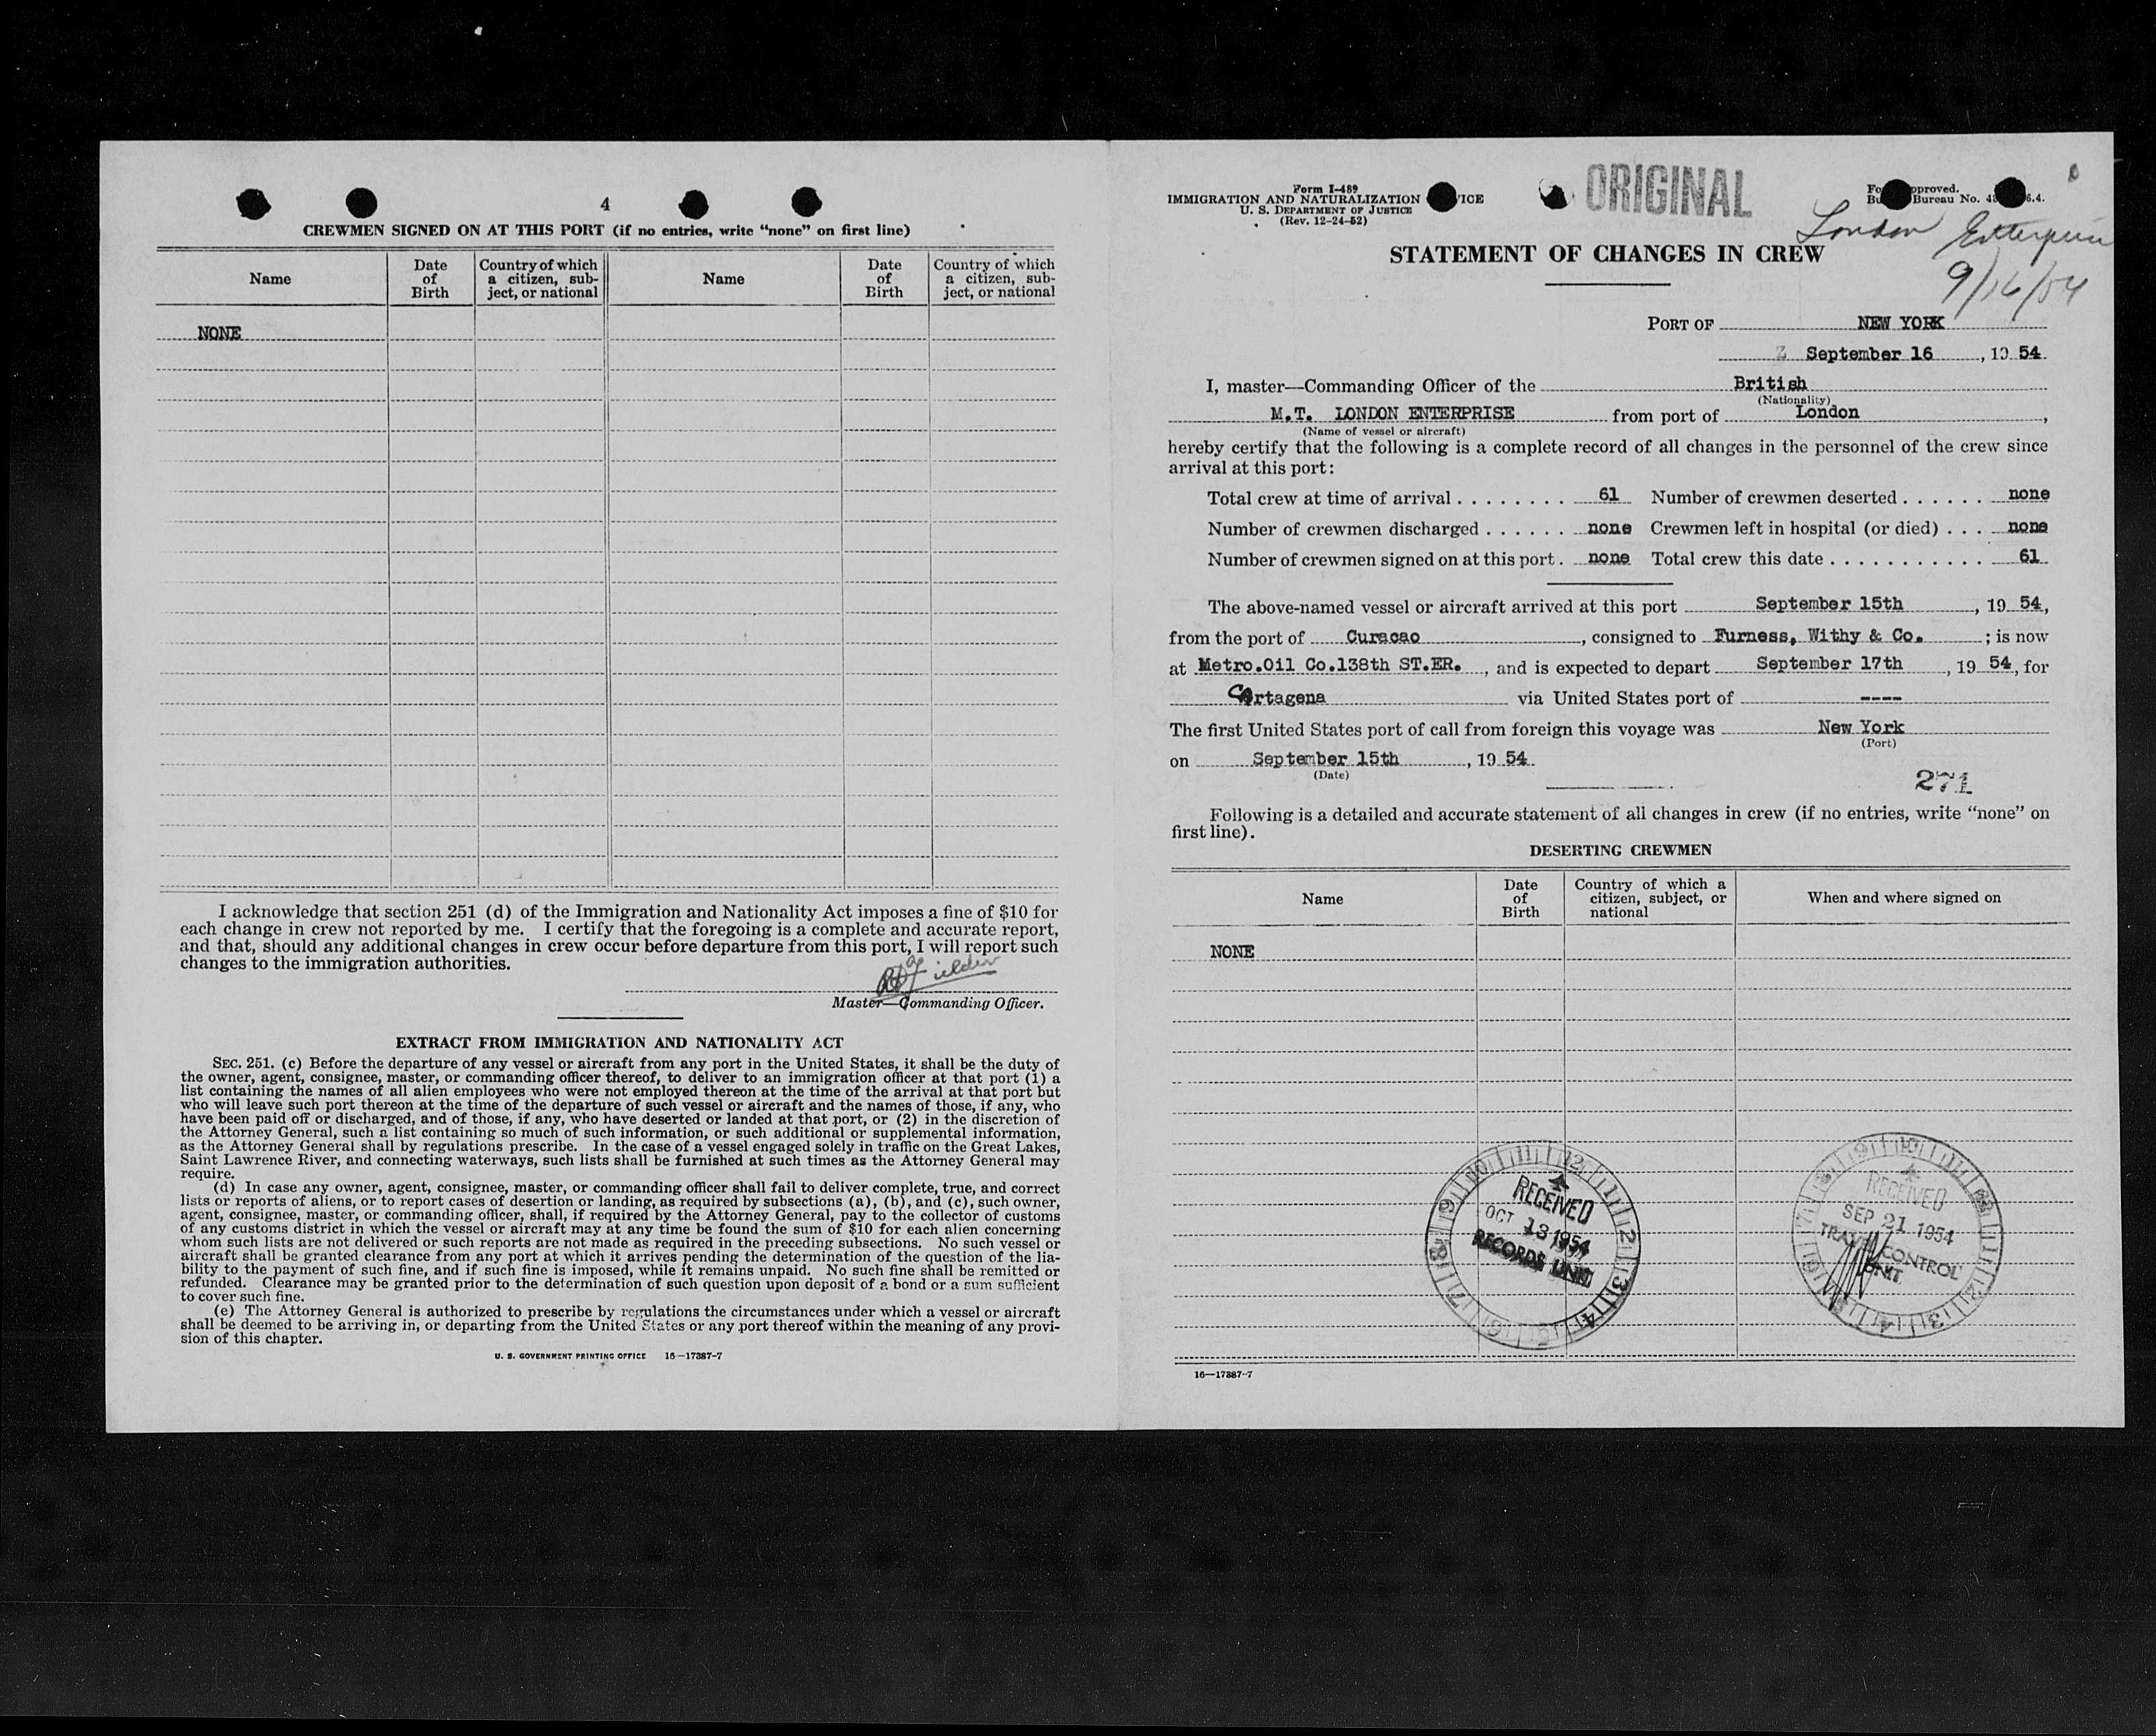 4
CREWMEN SIGNED ON AT THIS PORT (if no entries, write “none” on first line)
Name
Date of Birth
Country of which a citizen, sub-ject, or national
Name
Date of Birth
Country of which a citizen, sub-ject, or national
NONE
I acknowledge that section 251 (d) of the Immigration and Nationality Act imposes a fine of $10 for
each change in crew not reported by me. I certify that the foregoing is a complete and accurate report,
and that, should any additional changes in crew occur before departure from this port, I will report such
changes to the immigration authorities.
Master—Commanding Officer.
EXTRACT FROM IMMIGRATION AND NATIONALITY ACT
SEC. 251. (c) Before the departure of any vessel or aircraft from any port in the United States, it shall be the duty of
the owner, agent, consignee, master, or commanding officer thereof, to deliver to an immigration officer at that port (1) a
list containing the names of all alien employees who were not employed thereon at the time of the arrival at that port but
who will leave such port thereon at the time of the departure of such vessel or aircraft and the names of those, if any, who
have been paid off or discharged, and of those, if any, who have deserted or landed at that port, or (2) in the discretion of
the Attorney General, such a list containing so much of such information, or such additional or supplemental information,
as the Attorney General shall by regulations prescribe. In the case of a vessel engaged solely in traffic on the Great Lakes,
Saint Lawrence River, and connecting waterways, such lists shall be furnished at such times as the Attorney General may
require.
(d) In case any owner, agent, consignee, master, or commanding officer shall fail to deliver complete, true, and correct
lists or reports of aliens, or to report cases of desertion or landing, as required by subsections (a), (b), and (c), such owner,
agent, consignee, master, or commanding officer, shall, if required by the Attorney General, pay to the collector of customs
of any customs district in which the vessel or aircraft may at any time be found the sum of $10 for each alien concerning
whom such lists are not delivered or such reports are not made as required in the preceding subsections. No such vessel or
aircraft shall be granted clearance from any port at which it arrives pending the determination of the question of the lia-
bility to the payment of such fine, and if such fine is imposed, while it remains unpaid. No such fine shall be remitted or
refunded. Clearance may be granted prior to the determination of such question upon deposit of a bond or a sum sufficient
to cover such fine.
(e) The Attorney General is authorized to prescribe by regulations the circumstances under which a vessel or aircraft
shall be deemed to be arriving in, or departing from the United States or any port thereof within the meaning of any provi-
sion of this chapter.
U. S. GOVERNMENT PRINTING OFFICE 16—17387-7
Form I-489
IMMIGRATION AND NATURALIZATION
U. S. DEPARTMENT OF JUSTICE
(Rev. 12-24-52)
ORIGINAL
Bureau No.
London Enterprise
9/16/54
STATEMENT OF CHANGES IN CREW
PORT OF NEW YORK
September 16, 19 54.
I, master—Commanding Officer of the British
(Nationality)
M.T. LONDON ENTERPRISE from port of London,
(Name of vessel or aircraft)
hereby certify that the following is a complete record of all changes in the personnel of the crew since
arrival at this port:
Total crew at time of arrival . . . . . . . . 61 Number of crewmen deserted . . . . . . none
Number of crewmen discharged . . . . . . none Crewmen left in hospital (or died) . . . none
Number of crewmen signed on at this port . none Total crew this date . . . . . . . . . . . 61
The above-named vessel or aircraft arrived at this port September 15th, 19 54,
from the port of Curacao, consigned to Furness, Withy & Co. ; is now
at Metro.Oil Co.138th ST.ER., and is expected to depart September 17th, 19 54, for
Cartagena via United States port of ----
The first United States port of call from foreign this voyage was New York
(Port)
on September 15th, 19 54.
(Date)
271
Following is a detailed and accurate statement of all changes in crew (if no entries, write “none” on
first line).
DESERTING CREWMEN
Name
Date of Birth
Country of which a citizen, subject, or national
When and where signed on
NONE
RECEIVED
OCT 13 1954
RECORDS UNIT
RECEIVED
SEP 21 1954
TRAVEL CONTROL
UNIT
16—17387-7